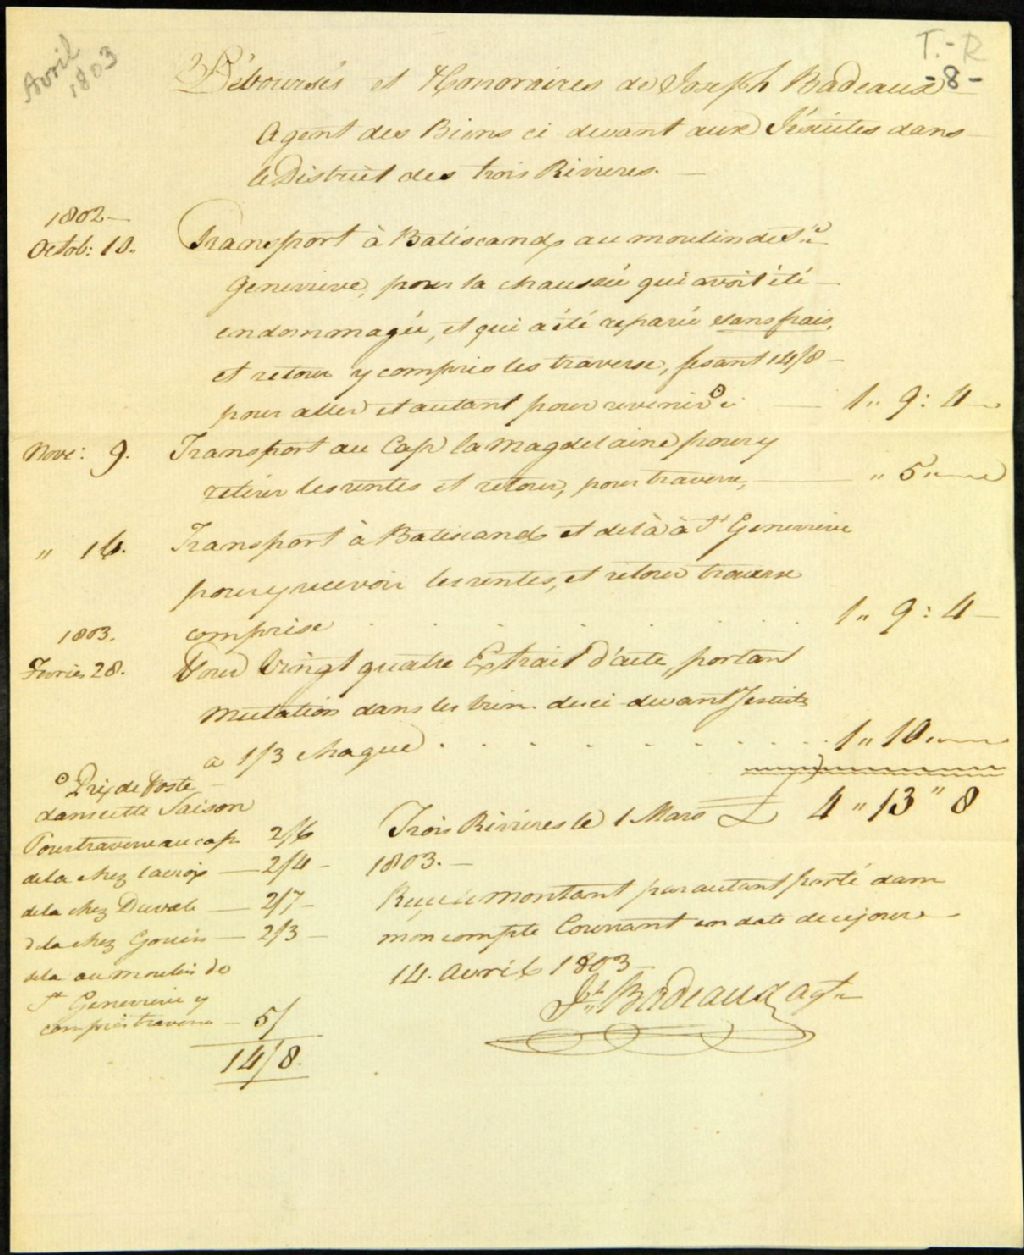 Avril
1803
T.-R
-8-
Déboursés et Honoraires de Joseph Badeaux
Agent des Biens ci devant aux Jésuites dans
le District des trois Rivieres. —
1802 —
Octob: 10. Transport à Batiscand, au moulin de Ste
Genevieve, pour la chaussée qui avoit été
endommagée, et qui a été reparée sans frais,
et retour y compris les traverse, fesant 14/8
pour aller et autant pour revenir — 1 " 9 : 4 —
Nove: 9. Transport au Cap la Magdelaine pour y
retirer les rentes et retour, pour traverse, — " 5 " —
" 16. Transport à Batiscand et delà à Ste Genevieve
pour y recevoir les rentes, et retour traverse
comprise . . . . . . . . 1 " 9 : 4 —
1803.
Fevrier 28. Pour Vingt quatre Extrait d'acte, portant
Mutation dans les bien des ci-devant Jesuits
a 1/3 chaque . . . . . . . . 1 " 10 " —
£ 4 " 13 " 8
Prix de Poste
dans cette Saison
Pour traverse au cap 2/6
de la chez Lacroix — 2/4 —
de la chez Duval — 2/7 —
de la chez Gouin — 2/3 —
de la au moulin de
Ste Genevieve y
compris traverse — 5/
14/8
Trois Rivieres le 1 Mars
1803. —
Reçu le montant par autant porté dans
mon compte Courant en date de ce jour —
14. Avril 1803
Jh. Badeaux agt